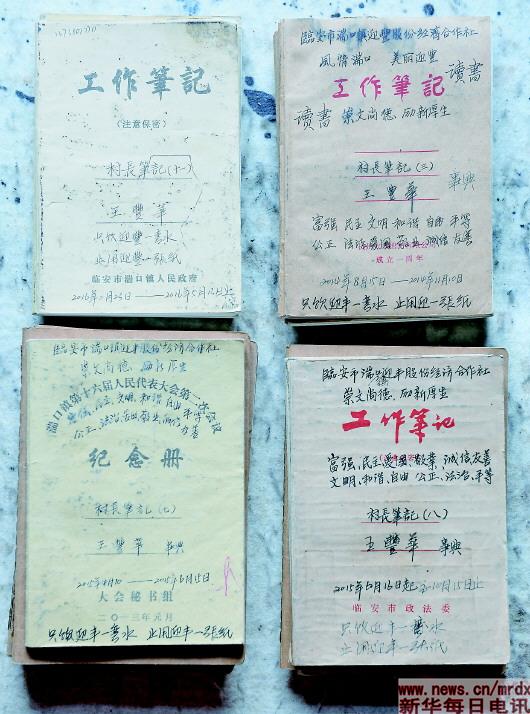 工作筆記
(注意保密)
村長筆記(十一)
王豐華
只饮迎丰一壼水
止用迎丰一张纸
临安市湍口镇人民政府
臨安市湍口鎮迎豐股份經濟合作社
風情湍口 美丽迎豐
工作筆記
讀書
讀書
崇文尚德、励新厚生
村長筆記(三)
王豐華
事典
富强 民主 文明 和谐 自由 平等
公正 法治 爱国 敬业 诚信 友善
成立一周年
2014年8月15日——2014年11月10日
只饮迎丰一壼水 止用迎丰一张纸
臨安市湍口鎮迎丰股份经济合作社
崇文尚德、励新厚生
湍口镇第十六届人民代表大会第二次会议
富强、民主、文明、和谐 自由 平等
公正、法治、爱国 敬业、诚信 友善
纪念册
村長筆記(七)
王豐華 事典
2015年6月15日
大会秘书组
二〇一三年元月
只饮迎丰一壼水 止用迎丰一张纸
臨安市湍口迎丰股份经济合作社
崇文尚德、励新厚生
工作筆记
富强、民主、爱國、敬業、诚信友善
文明、和谐、自由 公正、法治、平等
村長筆記(八)
王豐華 事典
2015年6月16日起至10月15日止
临安市政法委
只饮迎丰一壼水
止用迎丰一张纸
www.news.cn/mrdx
新华每日电讯